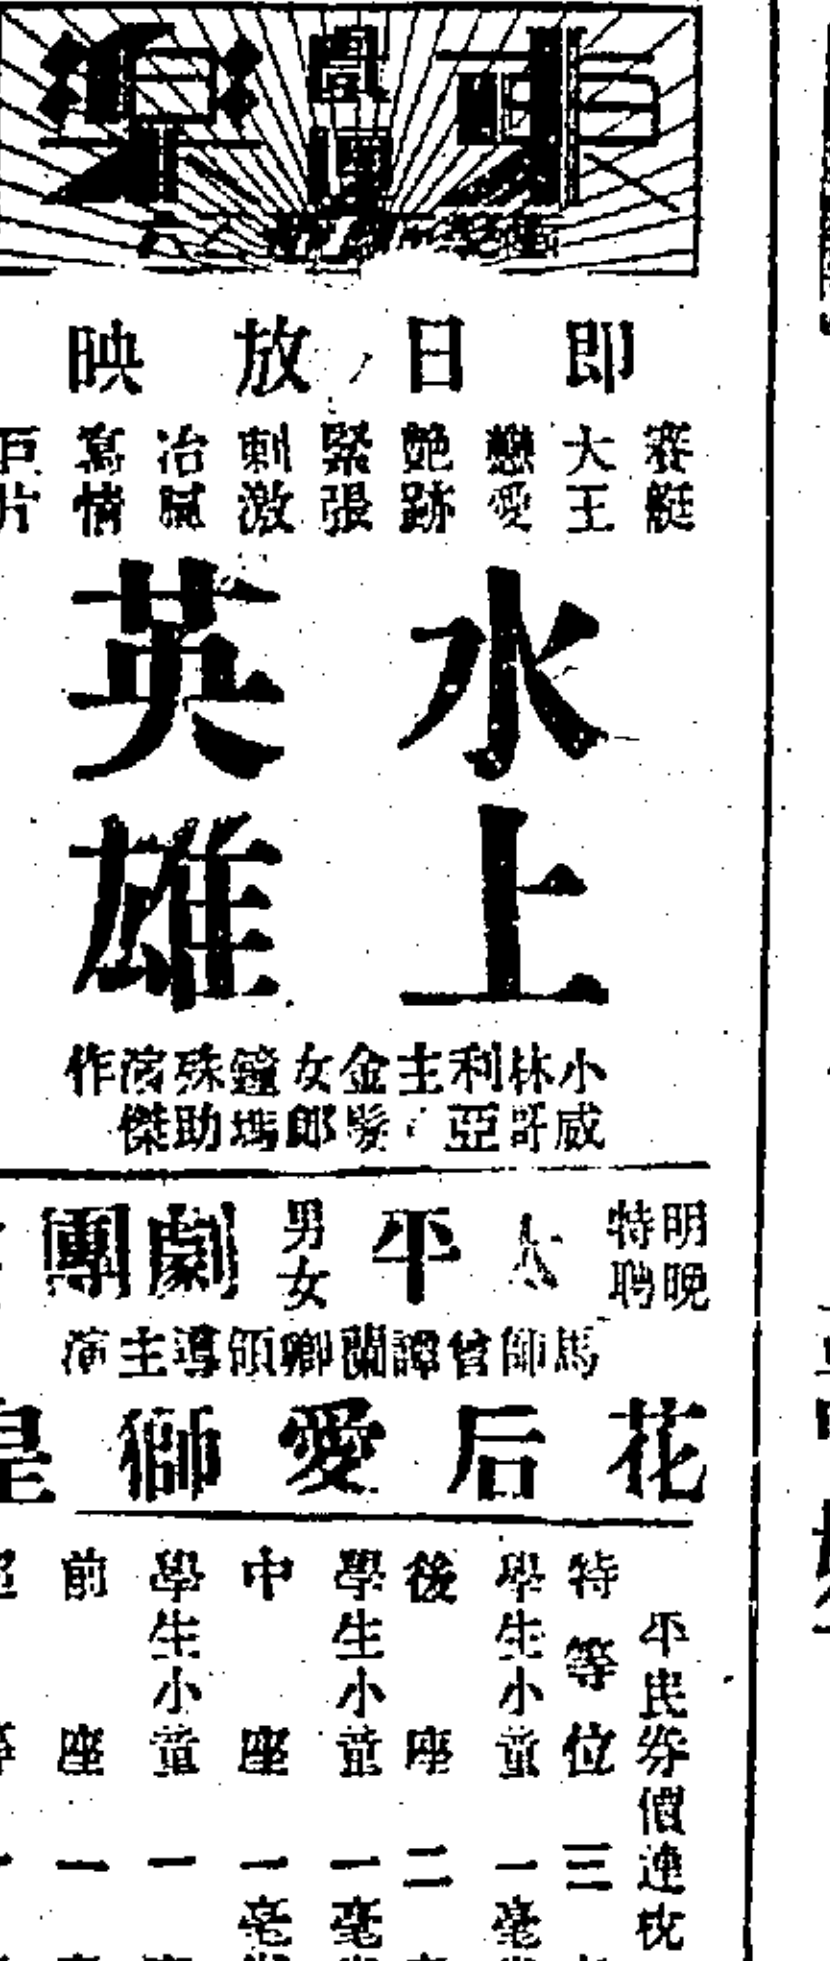 東樂
即日放映
賽艇大王戀愛艷跡緊張刺激冶膩寫情巨片
水上英雄
小威林哥利亞主
金髮女郎鐘瑪殊助演傑作
明晚特聘
太平男女劇團
馬師曾譚蘭卿領導主演
花后愛獅皇
平民券價連稅
特等位三
學生小童一毫
後座二
學生小童一毫
中座一毫
學生小童一
前座一